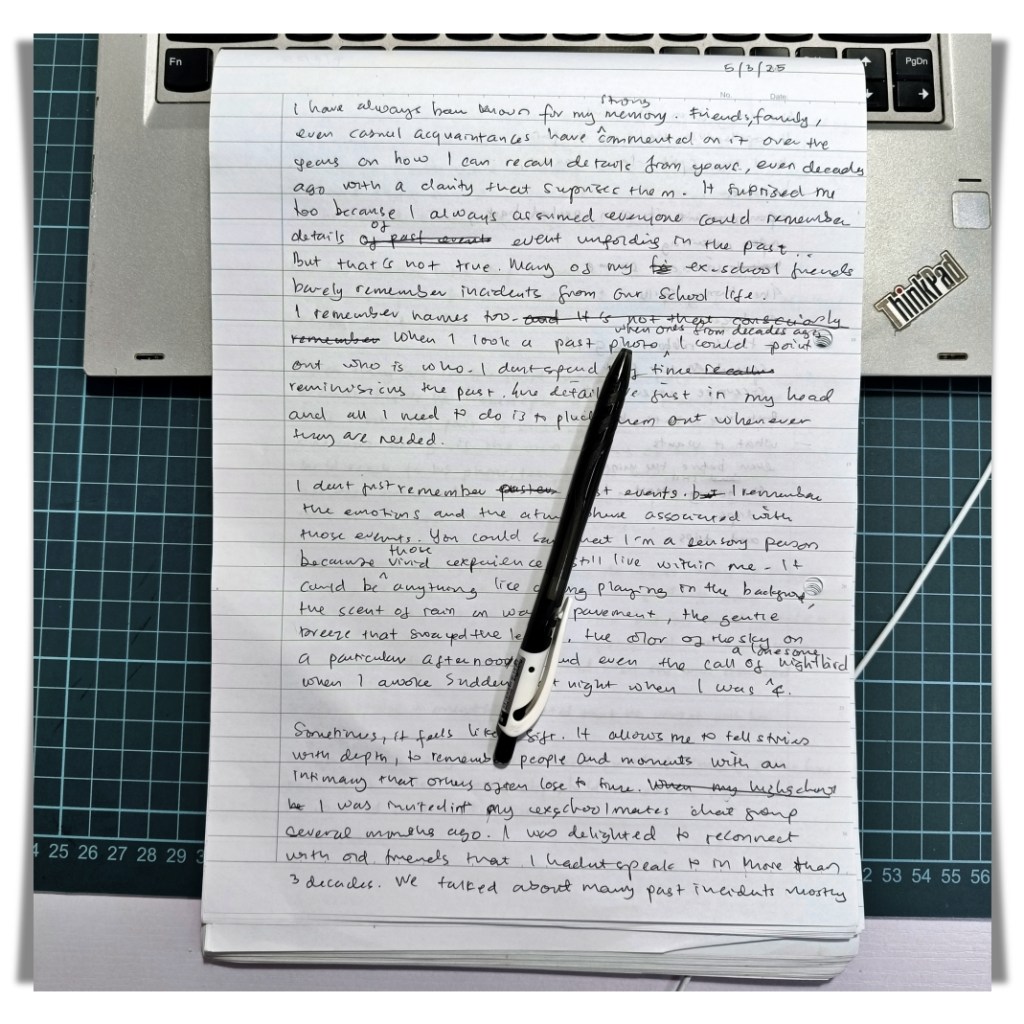 Fn
PgDn
ThinkPad
5/3/25
No. Date
strong
I have always been known for my memory. Friends, family,
even casual acquaintances have ^commented on it over the
years on how I can recall details from years, even decades
ago with a clarity that suprises them. It suprised me
too because I always assumed everyone could remember
of
details of past events event unfolding in the past.
But that's not true. Many of my ex-school friends
barely remember incidents from our school life.
I remember names too. and It's not that consciously
when ones from decades ago
remember When I look a past photo ^ I could point
out who is who. I dont spend time recalling
reminiscing the past. the detail just in my head
and all I need to do is to pluck them out whenever
they are needed.
I dont just remember events. but I remember
the emotions and the associated with
those events. You could that I'm a sensory person
those
because vivid experience still live within me. It
could be ^ anything like playing in the background,
the scent of rain on pavement, the gentle
breeze that swayed the the color of the sky on
a lonesome
a particular afternoon and even the call of nightbird
when I awoke sudden night when I was ^ 4.
Sometimes, it feels like gift. It allows me to tell stories
with depth, to remember people and moments with an
intimacy that others often lose to time. When my highschool
I was invited in my exschoolmates chat group
several months ago. I was delighted to reconnect
with old friends that I hadnt speak to in more than
3 decades. We talked about many past incidents mostly
25 26 27 28 29 3
2 53 54 55 56